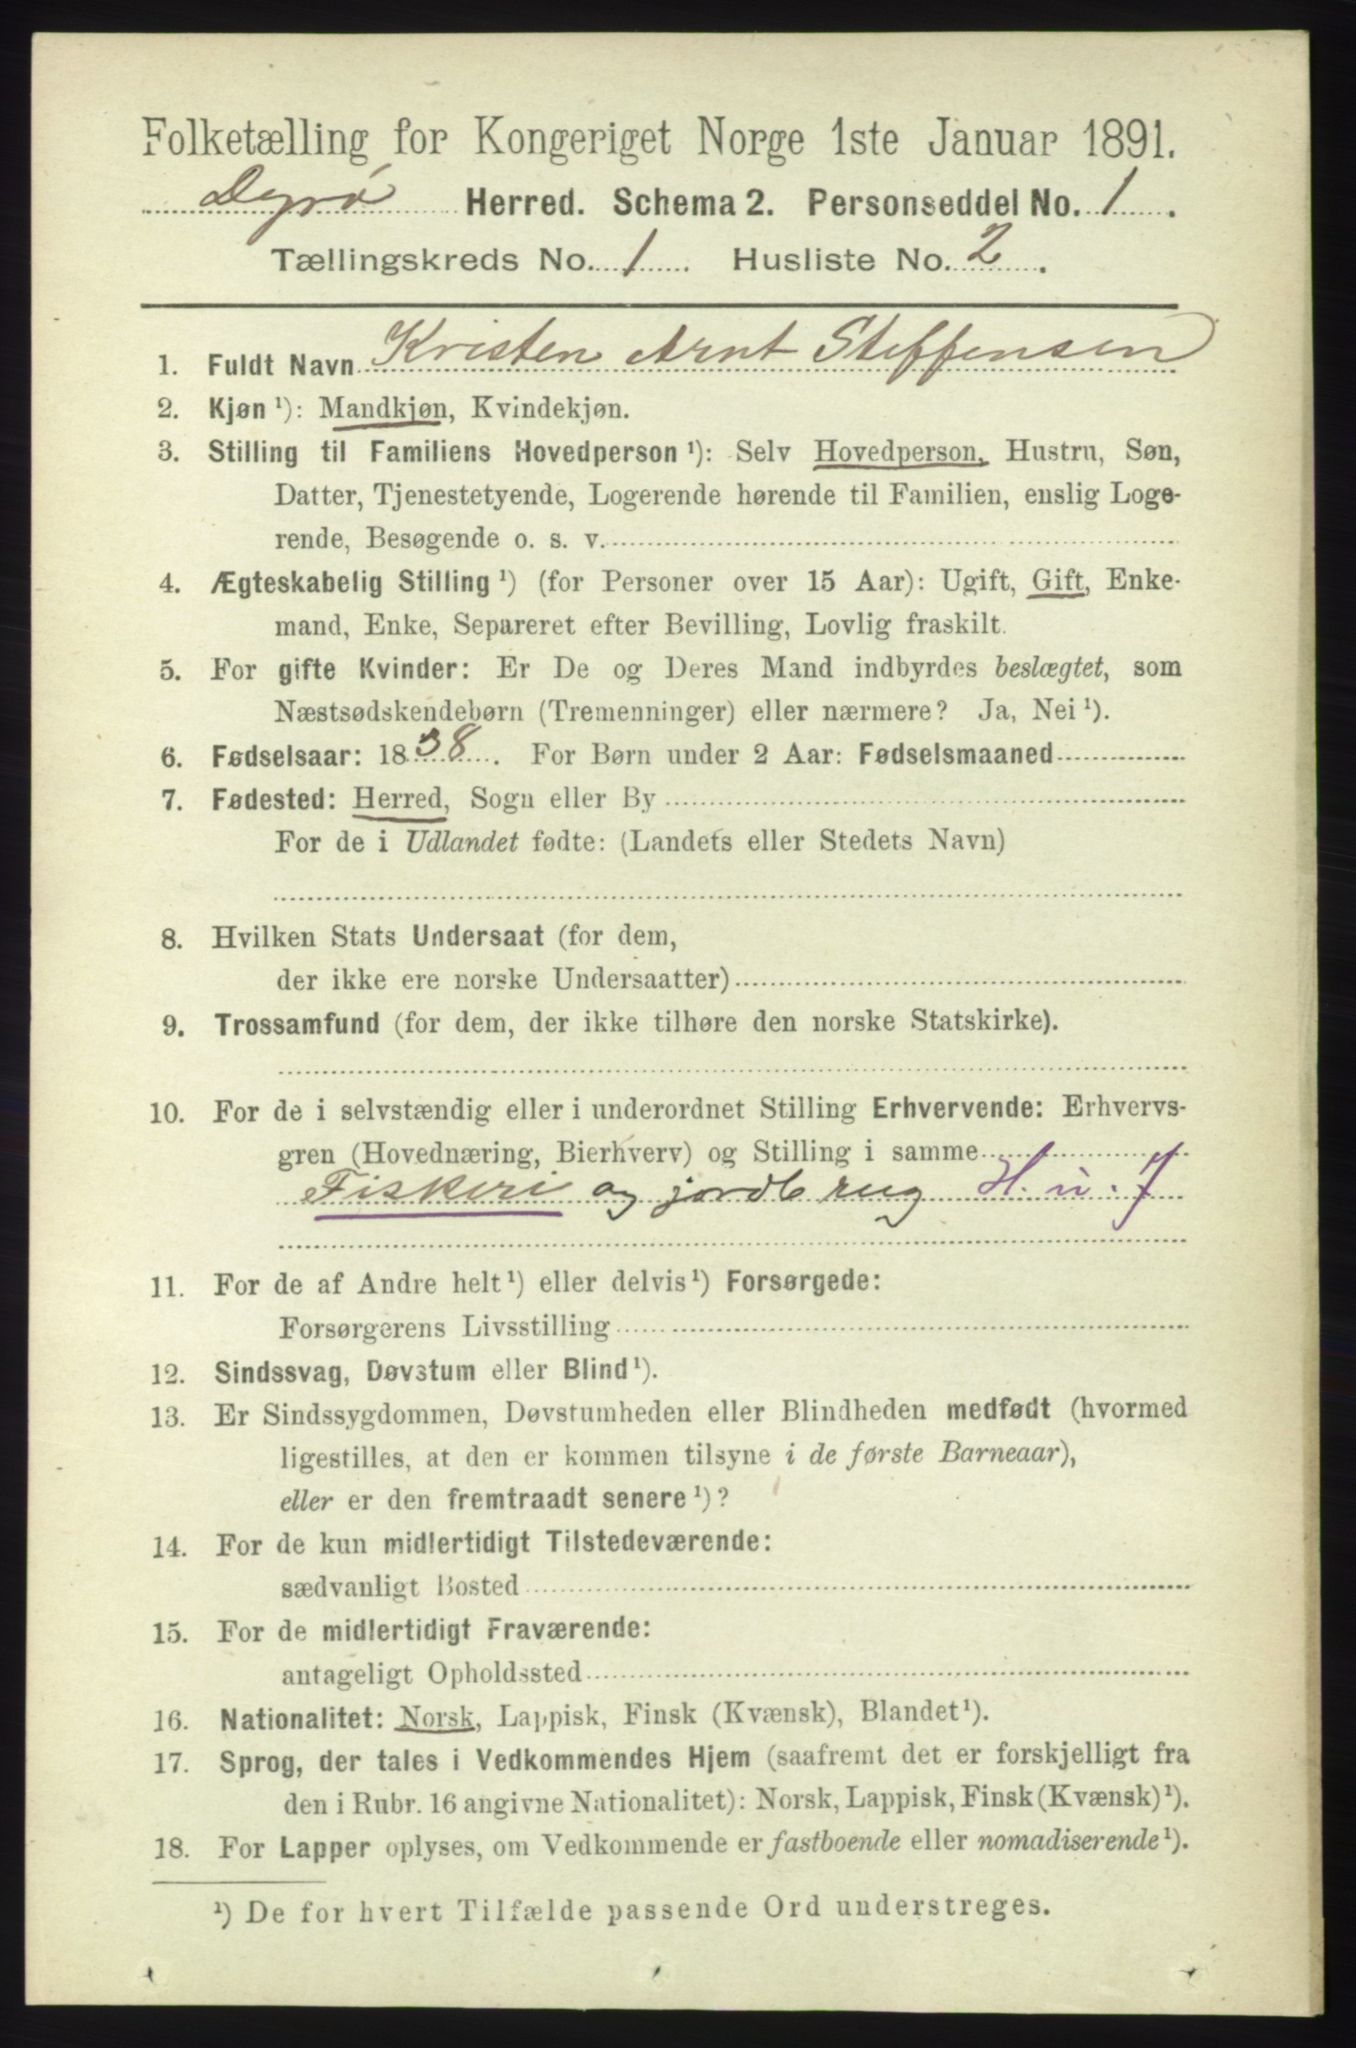 Folketælling for Kongeriget Norge 1ste Januar 1891.
Dyrø Herred. Schema 2. Personseddel No. 1.
Tællingskreds No. 1. Husliste No. 2.
1. Fuldt Navn Kristen Arnt Steffensen
2. Kjøn ¹): Mandkjøn, Kvindekjøn.
3. Stilling til Familiens Hovedperson ¹): Selv Hovedperson, Hustru, Søn,
Datter, Tjenestetyende, Logerende hørende til Familien, enslig Loge-
rende, Besøgende o. s. v.
4. Ægteskabelig Stilling ¹) (for Personer over 15 Aar): Ugift, Gift, Enke-
mand, Enke, Separeret efter Bevilling, Lovlig fraskilt.
5. For gifte Kvinder: Er De og Deres Mand indbyrdes beslægtet, som
Næstsødskendebørn (Tremenninger) eller nærmere? Ja, Nei ¹).
6. Fødselsaar: 1838. For Børn under 2 Aar: Fødselsmaaned
7. Fødested: Herred, Sogn eller By
For de i Udlandet fødte: (Landets eller Stedets Navn)
8. Hvilken Stats Undersaat (for dem,
der ikke ere norske Undersaatter)
9. Trossamfund (for dem, der ikke tilhøre den norske Statskirke).
10. For de i selvstændig eller i underordnet Stilling Erhvervende: Erhvervs-
gren (Hovednæring, Bierhverv) og Stilling i samme
Fiskeri og jordbrug H. u. 7
11. For de af Andre helt ¹) eller delvis ¹) Forsørgede:
Forsørgerens Livsstilling
12. Sindssvag, Døvstum eller Blind ¹).
13. Er Sindssygdommen, Døvstumheden eller Blindheden medfødt (hvormed
ligestilles, at den er kommen tilsyne i de første Barneaar),
eller er den fremtraadt senere ¹)?
14. For de kun midlertidigt Tilstedeværende:
sædvanligt Bosted
15. For de midlertidigt Fraværende:
antageligt Opholdssted
16. Nationalitet: Norsk, Lappisk, Finsk (Kvænsk), Blandet ¹).
17. Sprog, der tales i Vedkommendes Hjem (saafremt det er forskjelligt fra
den i Rubr. 16 angivne Nationalitet): Norsk, Lappisk, Finsk (Kvænsk) ¹).
18. For Lapper oplyses, om Vedkommende er fastboende eller nomadiserende ¹).
¹) De for hvert Tilfælde passende Ord understreges.